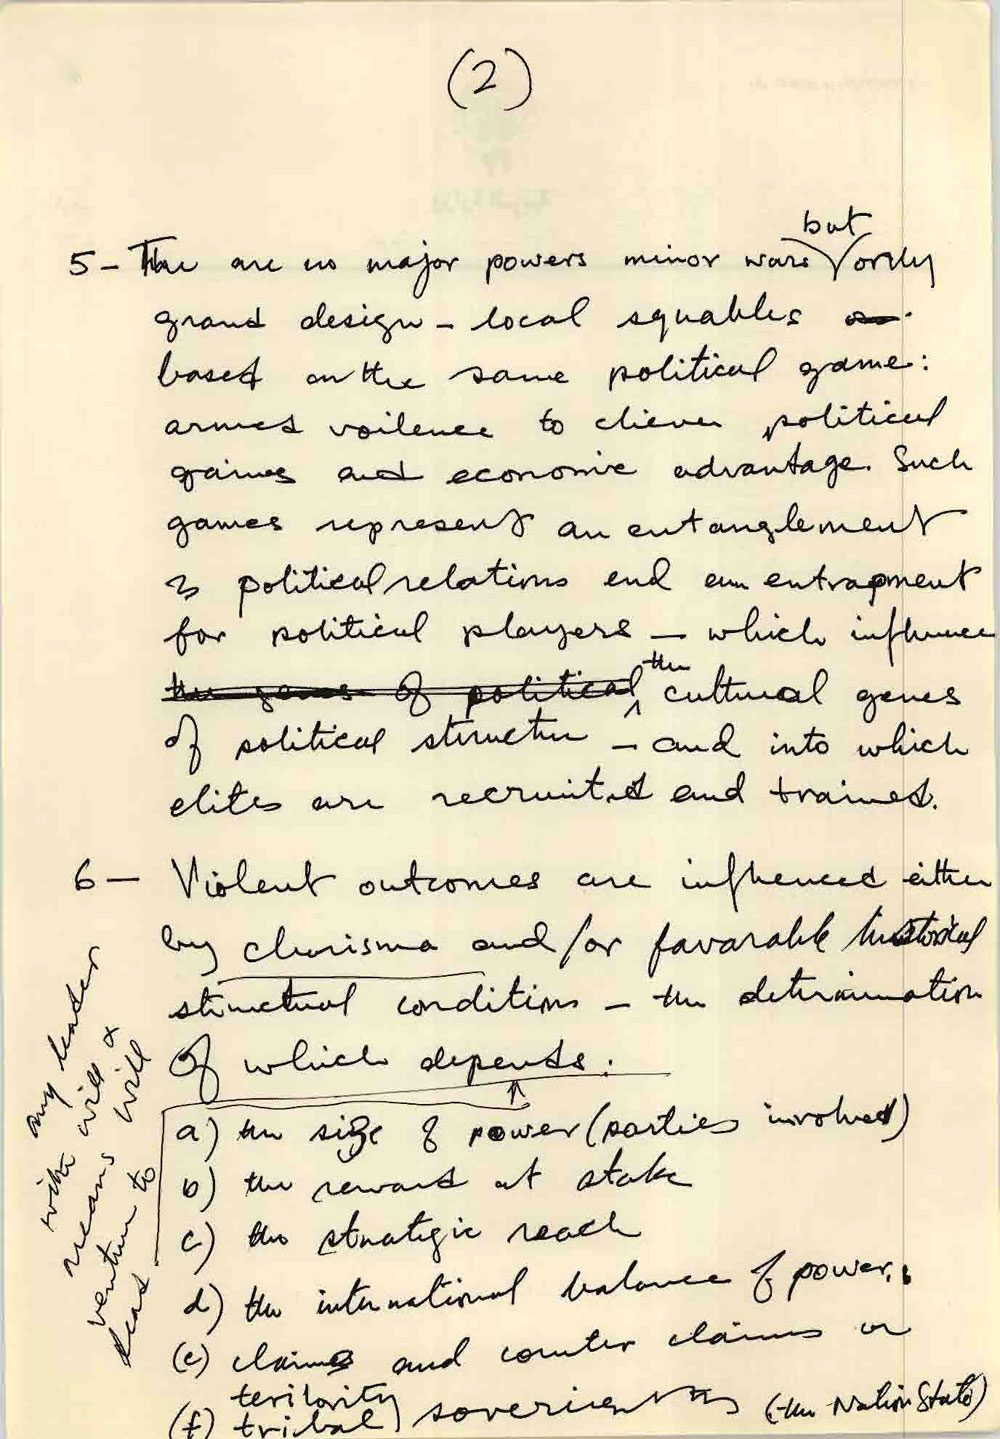 (2)
but
5- Ther are no major powers minor wars only
grand design - local squables
based on the same political game:
armed voilence to chieve political
gaines and economic advantage. Such
games represent an entanglement
political relations and an entrapment
for political players - which influence
of political the cultural genes
of political structure - and into which
elites are recruited and trained.
6- Violent outcomes are influenced either
by charisma and/or favarable historical
structual conditions - the determination
of which depends:
a) the size of power (parties involved)
b) the reward at stake
c) the strategic reach
d) the international balance of power.
(e) claims and counter claims on
terilority
(f) tribal (the Nation State)
any leader
with will &
means will
venture to